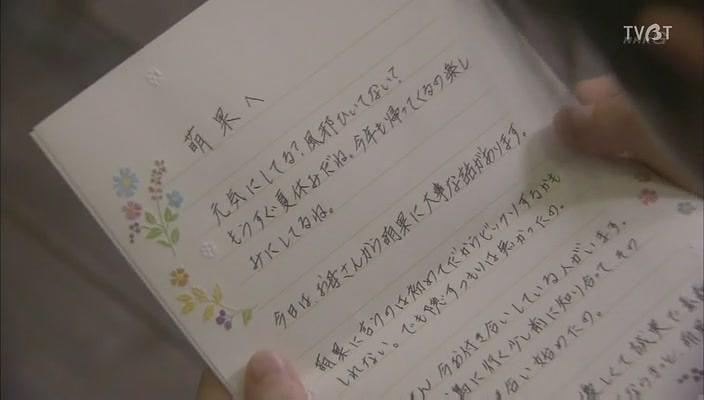 TVBT
萌果へ
元気にしてる？風邪ひいてない？
もうすぐ夏休みだね。今年も帰ってくるの楽し
みにしてるね。
今日は、お母さんから萌果に大事な話があります。
萌果に言うのは初めてだからビックリするかも
しれない。でも隠すつもりは無かったの。
今お付き合いしている人がいます。
に行く少し前に知り合って、その
合い始めたの。
しくて誠実で